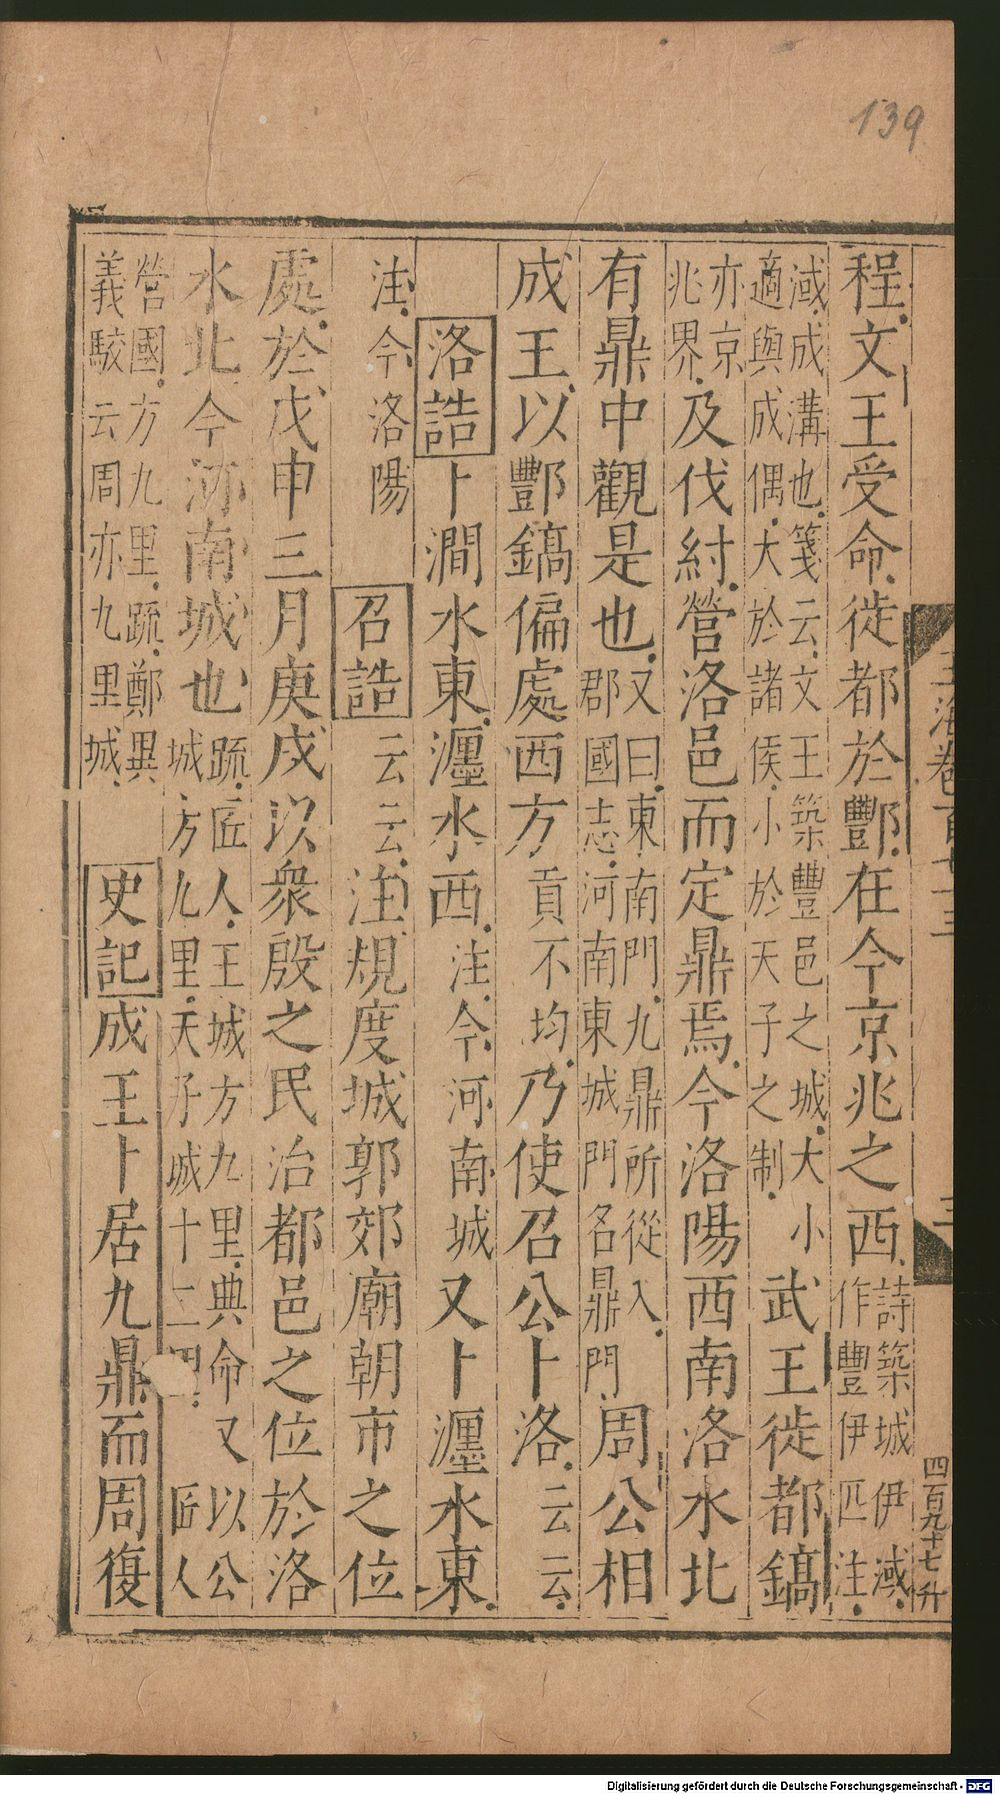 玉海卷百七十三
三
四百九十七升
程文王受命徙都於酆在今京兆之西詩築城伊淢
作豐伊匹注
淢成溝也箋云文王築豐邑之城大小
適與成偶大於諸侯小於天子之制武王徙都鎬
亦京
兆界及伐紂營洛邑而定鼎焉今洛陽西南洛水北
有鼎中觀是也又曰東南門九鼎所從入
郡國志河南東城門名鼎門周公相
成王以酆鎬偏處西方貢不均乃使召公卜洛云云
洛誥卜澗水東瀍水西注今河南城又卜瀍水東
注今洛陽 召誥云云注規度城郭郊廟朝市之位
處於戊申三月庚戌以衆殷之民治都邑之位於洛
水北今河南城也疏匠人王城方九里典命又以公
城方九里天子城十二 匠人
營國方九里疏鄭異
義駮云周亦九里城 史記成王卜居九鼎而周復
139
Digitalisierung gefördert durch die Deutsche Forschungsgemeinschaft - DFG